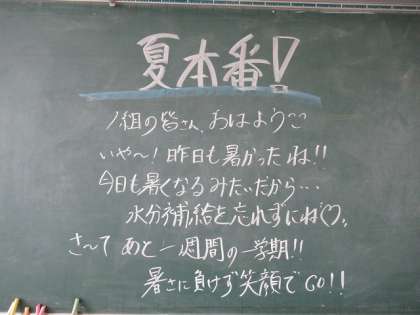 夏本番!
1組の皆さん、おはよう
いや〜!昨日も暑かったね!!
今日も暑くなるみたいだから…
水分補給を忘れずにね♡。
さ〜て あと一週間の一学期!!
暑さに負けず笑顔でGO!!